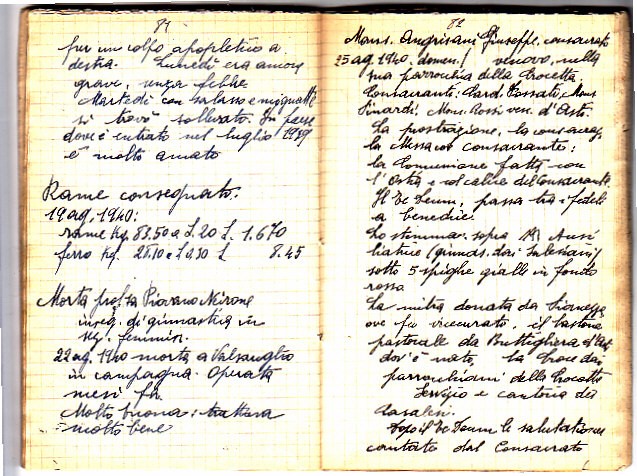 81
per un colpo apopletico a
destra. Lunedì era ancora
grave, senza febbre
Martedì con salasso e mignatte
si trovò sollevato. In paese
dove è entrato nel luglio 1939
è molto amato
Rame consegnato.
19 ag. 1940:
rame Kg. 83,50 a £. 20 £. 1.670
ferro Kg. 28,10 a £ 0.30 £ 8.45
Morta prof.ssa Piovano Neirone
inseg. di ginnastica in
femmin.
22 ag. 1940 morta a
in campagna. Operata
mesi fa.
Molto buona: trattava
molto bene
82
Mons. Angrisani Giuseppe, consacrato
25 ag. 1940. domen. vescovo, nella
sua parrocchia della Crocetta.
Consacranti: Card. Fossati, Mons
Pinardi, Mons. Rossi vesc. d'Asti.
La prostrazione, la consacraz.
la Messa col consacrante:
la Comunione fatta con
l'Ostia e col calice del Consacrante.
Il Te Deum, passa tra i fedeli
a benedire.
Lo stemma: sopra Ausi
liatrice (ginnas. dai Salesiani)
sotto 5 spighe gialle in fondo
rosso
La mitra donata da
ove fu vicecurato, il bastone
pastorale da Buttigliera d'Asti
dov'è nato, la Croce dai
parrocchiani della Crocetta
Servizio e cantoria dei
Dopo il Te Deum le salutationes
cantato dal Consacrato